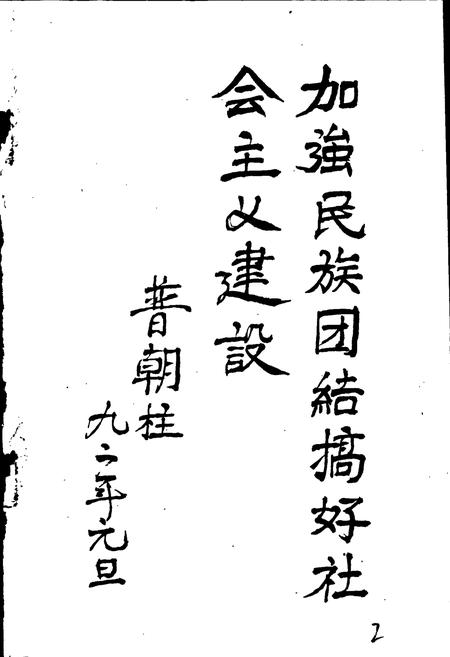 加強民族团結搞好社
会主义建設
普朝柱
九二年元旦
2